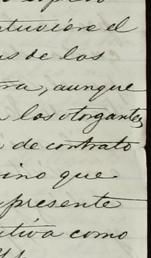 tuviere el
as de los
ra, aunque
a los otorgantes
de contrato
ino que
presente
itiva como